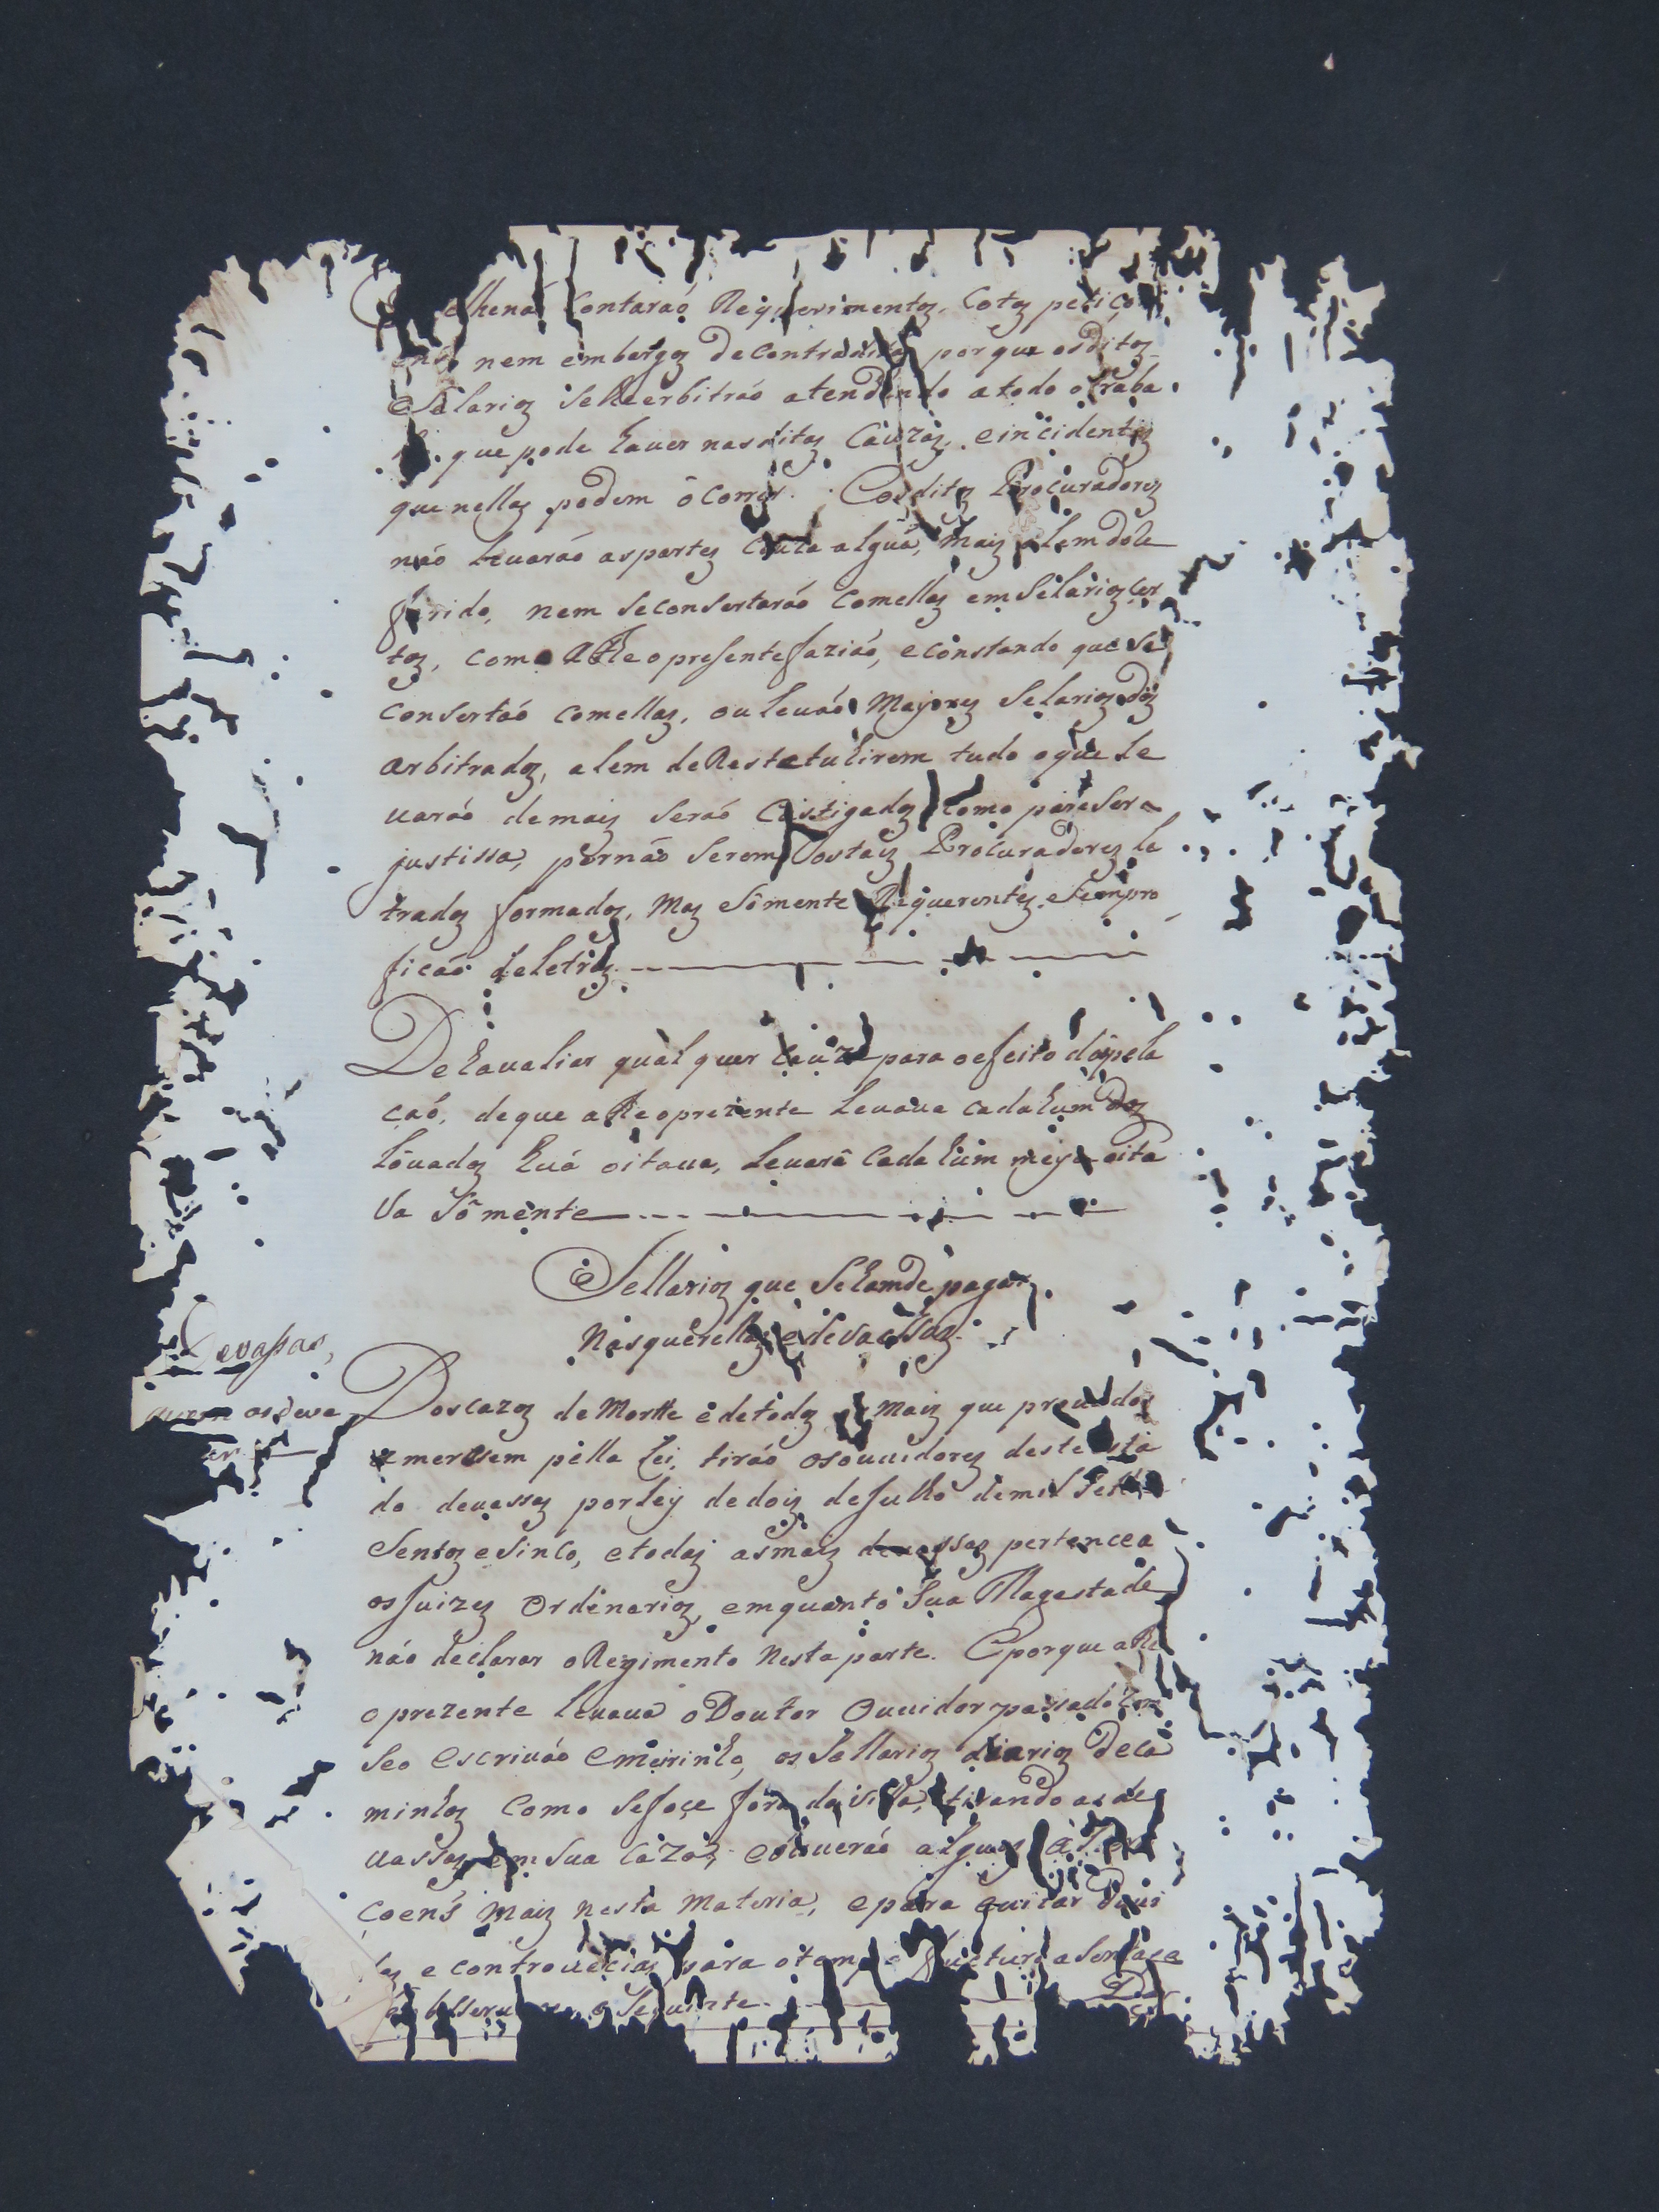 lhena Contaraó Requerimentos, Cotas petiço
ens, nem embargos de contraditas porque os ditos
Selarios se lhe erbitraó atendendo a todo o traba
que pode hauer nas ditas Cauzas, e incidentes
que nellas podem ocorrer. E os ditos Procuradores
náo leuaráo as partes couza algũa, mais alem do re
ferido, nem se consertaráo com ellas em selarios cer
tos, como athe o presente faziáo, e constando que se
consertáo com ellas, ou leuáo mayores selarios dos
arbitrados, alem de Restetuhirem tudo o que le
uaráo demais seráo Castigados como pareser a
justissa, por náo serem os tais Procuradores le
trados formados, mas sómente Requerentes e sem pro
ficáo de letras
De hauuliar qual quer Cauza para o efeito dapela
caó, de que athe o prezente Leuaua cada hum dos
Louados huá oitaua, leuará Cada hum meya oita
va sómente
Sellarios que se ham de pagar
nas querellas e devassas
Devassas,
os deve
Dos cazos de Mortte e de todos os mais que prouados
merssem pella Lei, tiráo os ouuidores deste esta
do deuassas por Ley de dois de Julho de mil sette
sentos e sinco, e todas as mais deuassas pertence a
os Juizes Ordinarios, emquanto Sua Magestade
náo declarar o Regimento nesta parte. E porque athe
o prezente leuaua o Doutor Ouuidor passado com
seo escriuáo e meirinho, os sallarios diarios de ca
minhos como se foçe fora da villa, tirando as de
uassas em sua caza, e ouueráo alguas alt
coens mais nesta materia, e para euitar Duui
das e controuecias para o tempo fuctturo a
obseru o seguinte